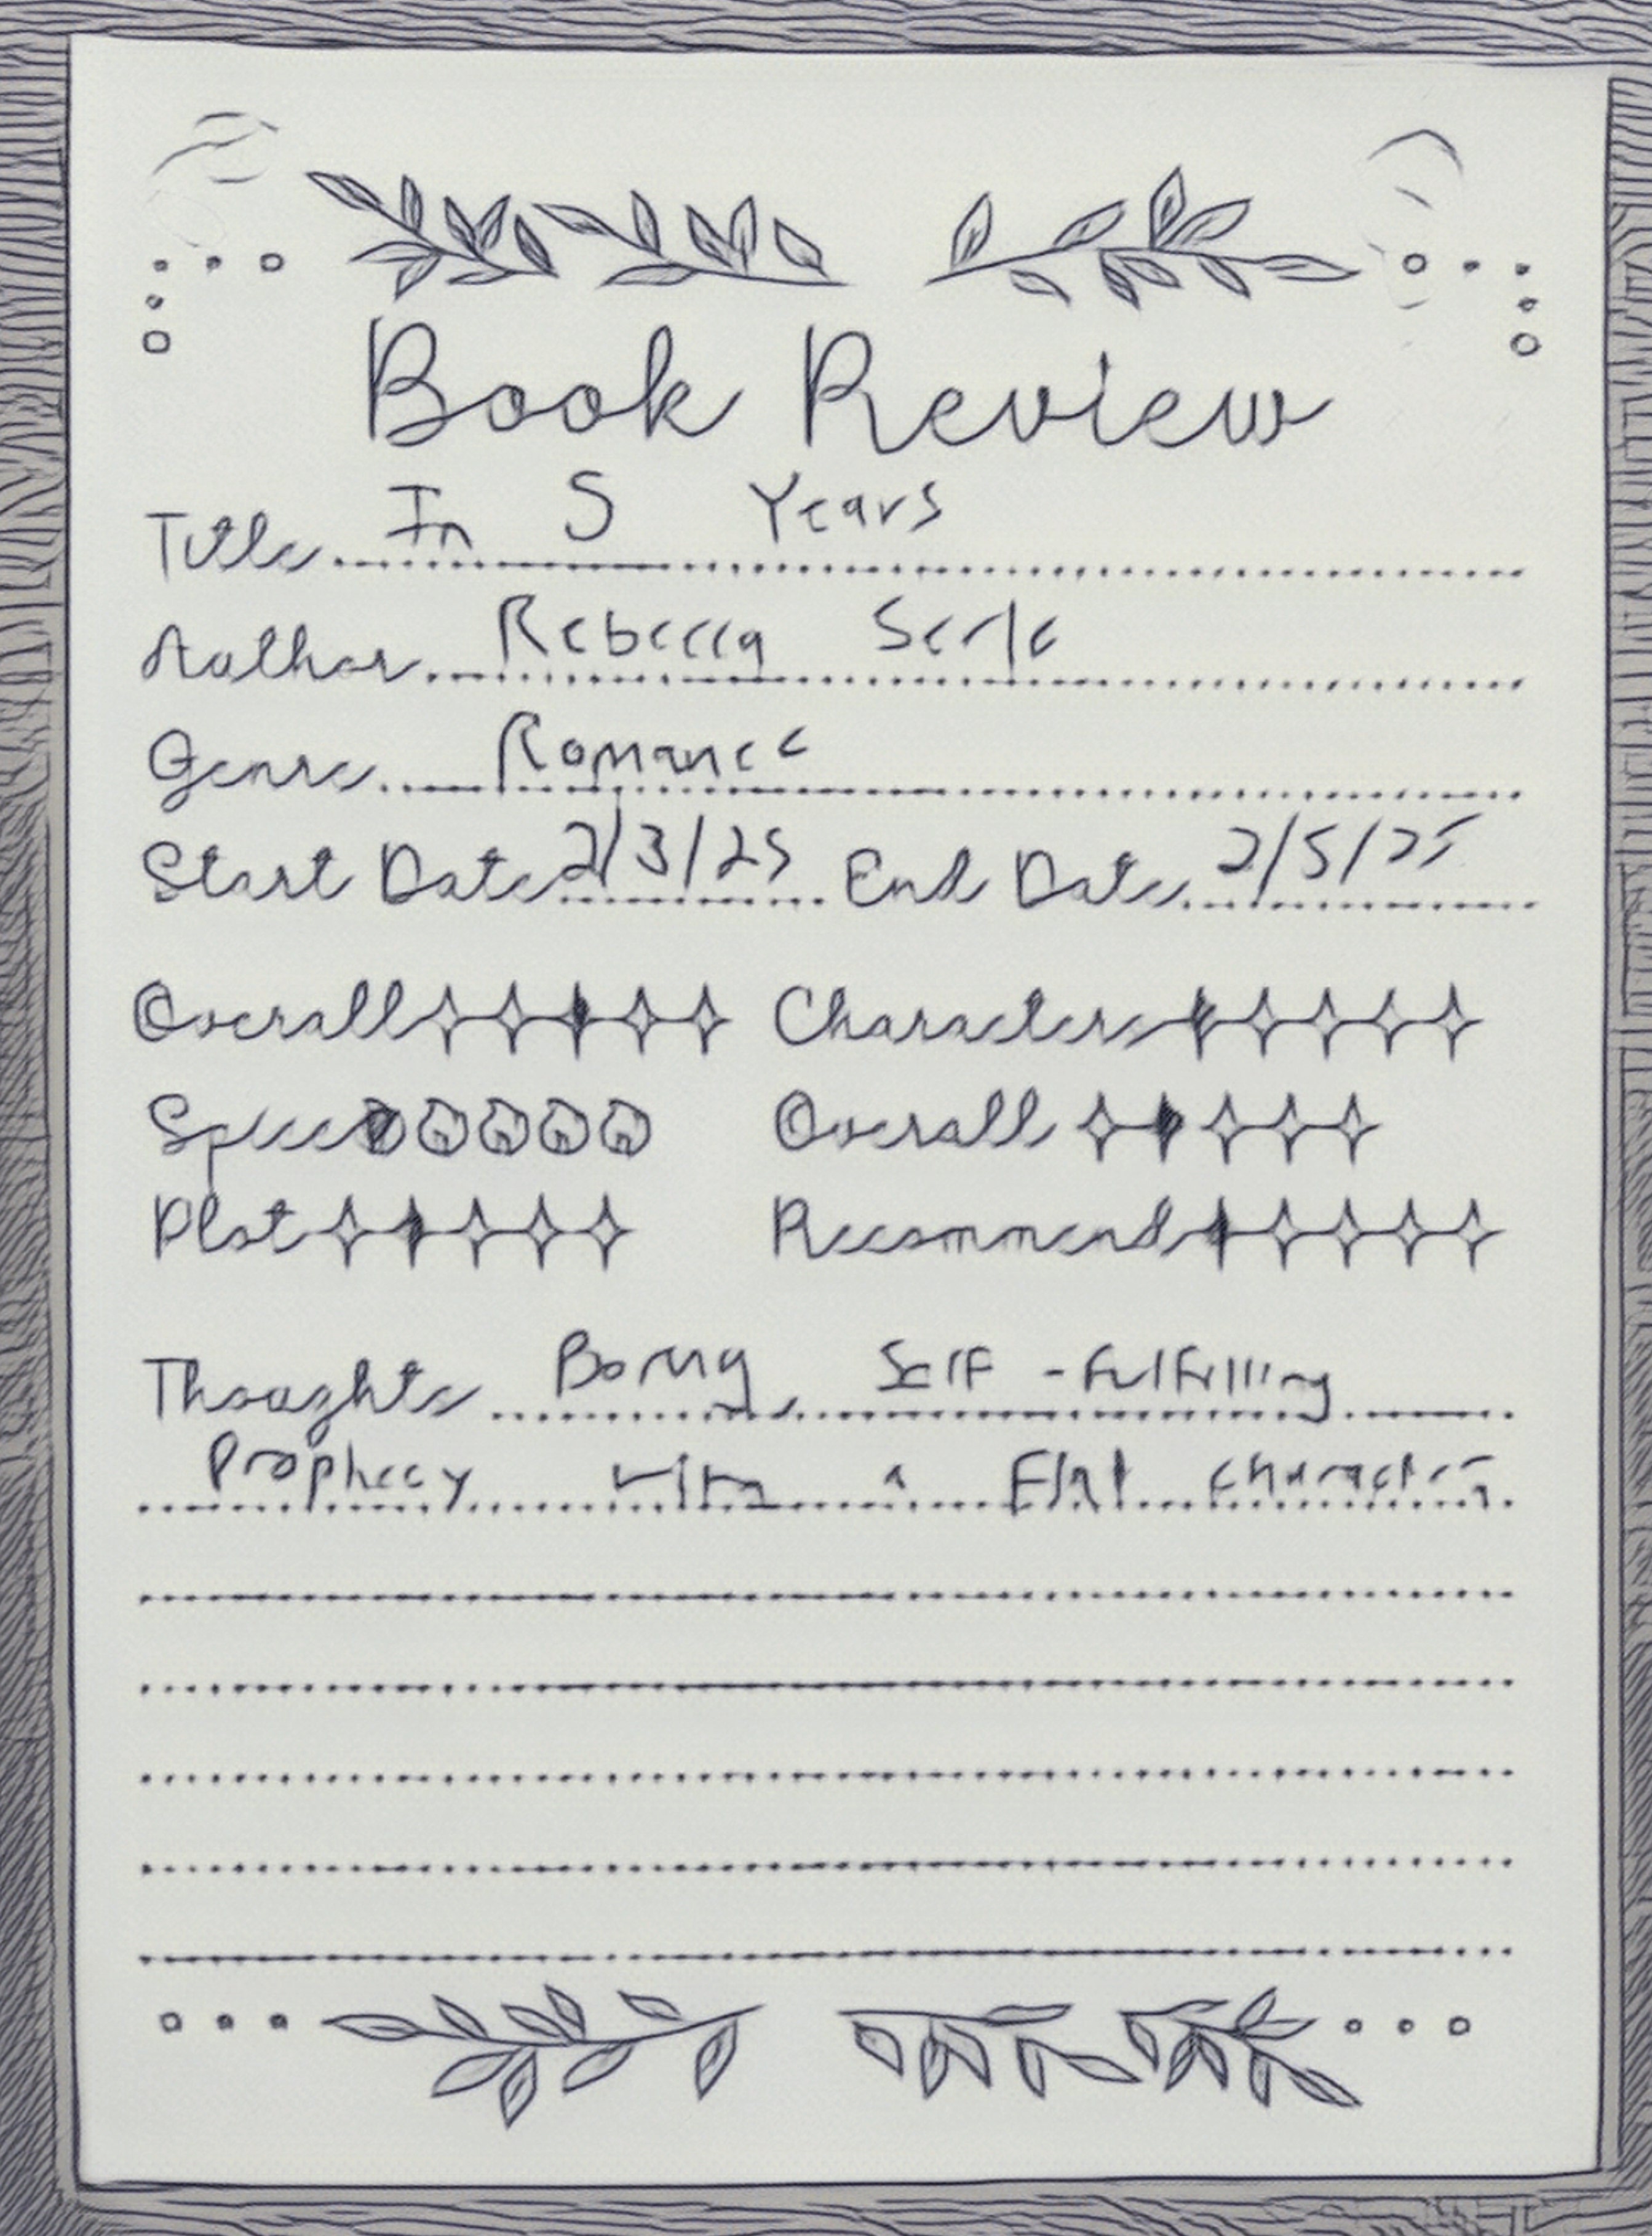 Book Review
Title In 5 Years
Author Rebecca Serle
Genre Romance
Start Date 2/3/25 End Date 2/5/25
Overall Characters
Spice Overall
Plot Recommend
Thoughts Boring, Self-fulfilling
Prophecy with a flat character